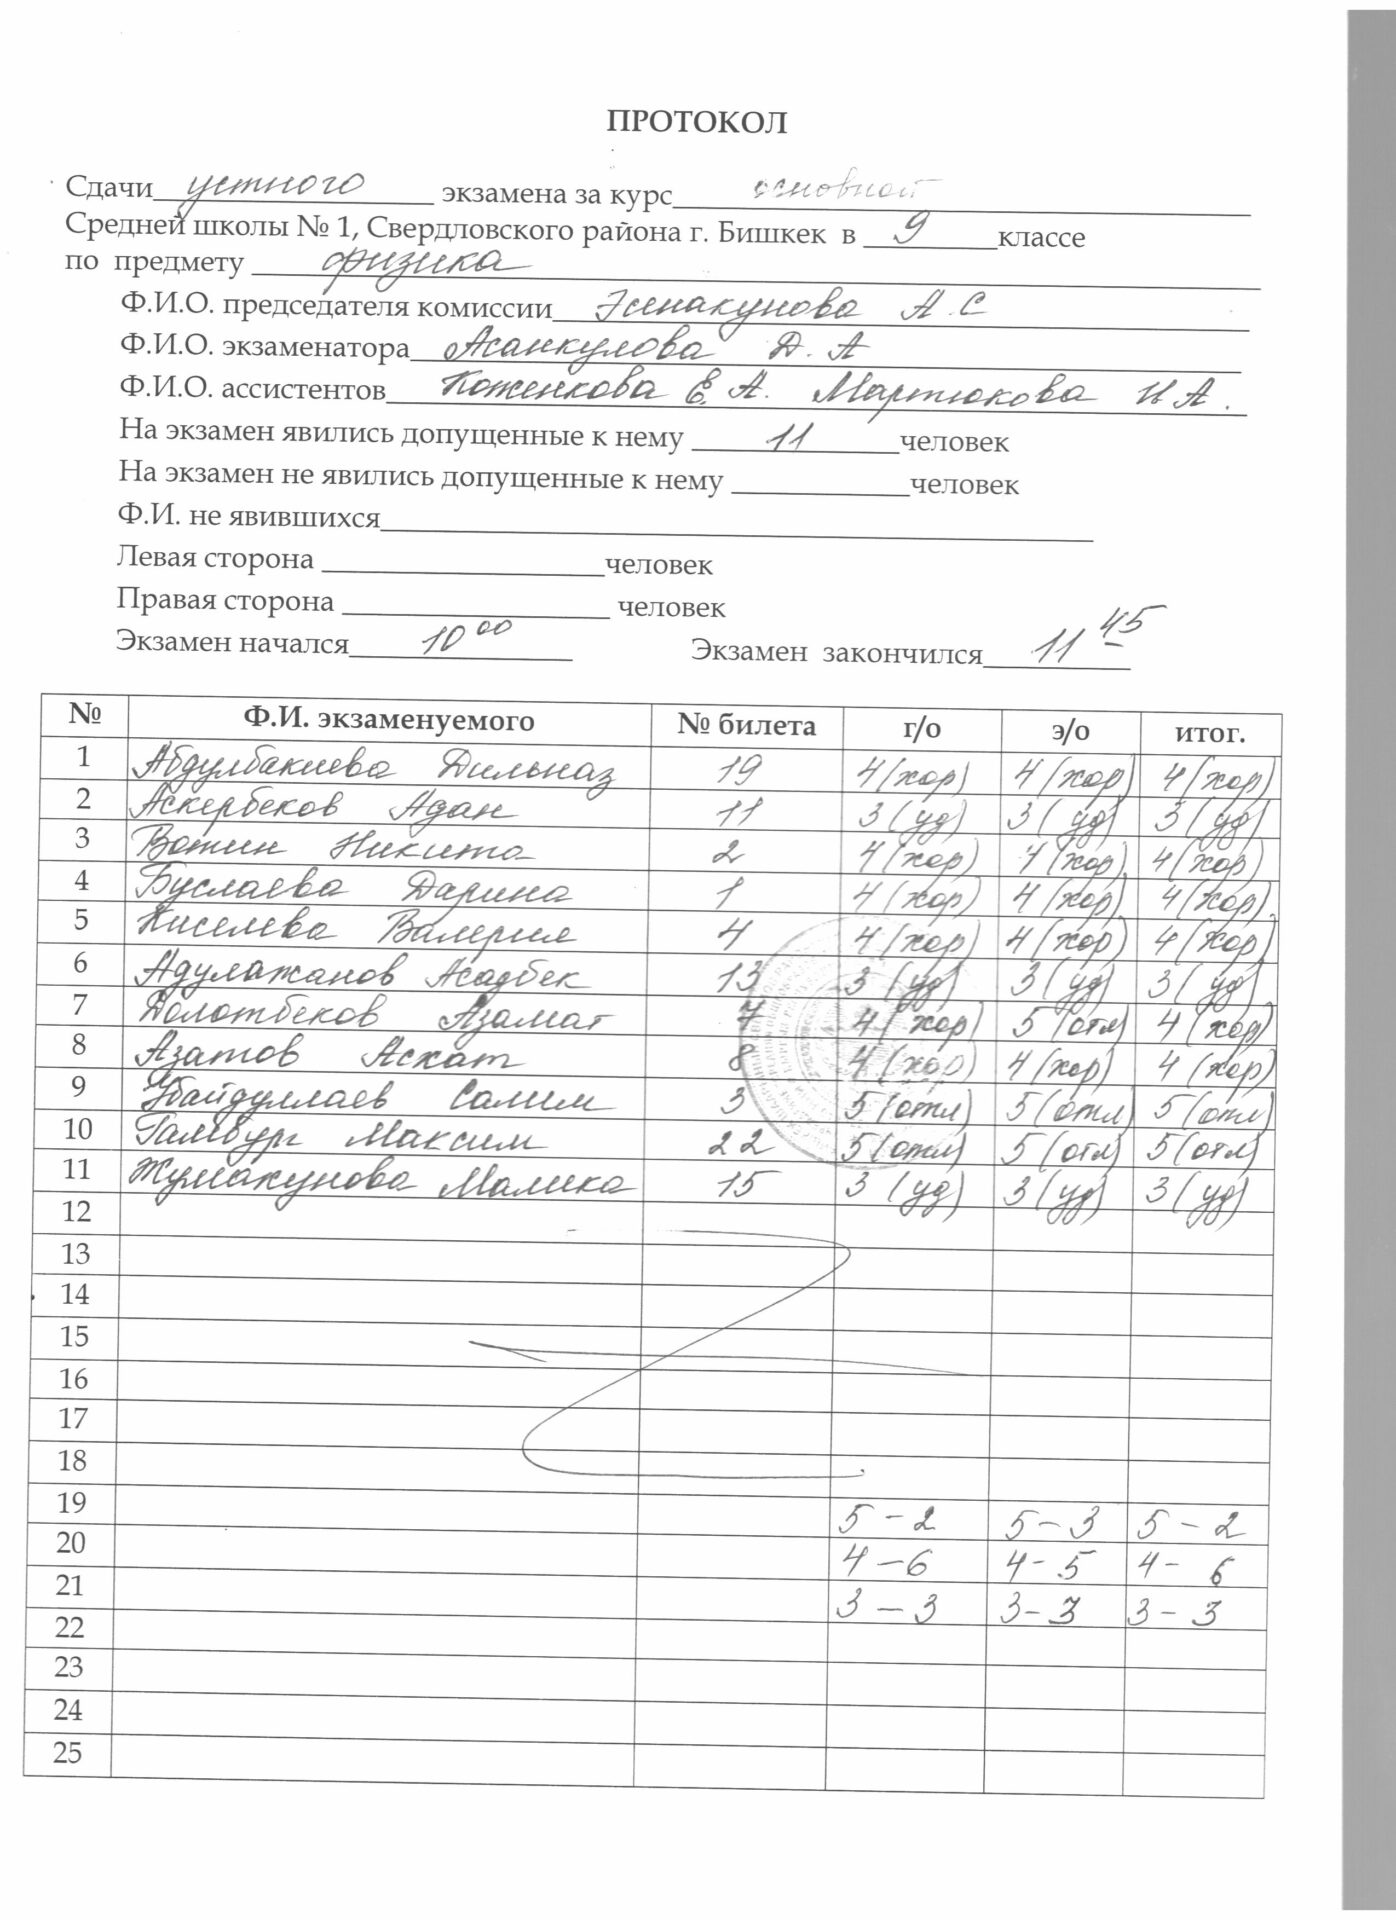 ПРОТОКОЛ
Сдачи устного экзамена за курс основной
Средней школы № 1, Свердловского района г. Бишкек в 9 классе
по предмету физика
Ф.И.О. председателя комиссии Эсенакунова А.С
Ф.И.О. экзаменатора Асанкулова Д.А
Ф.И.О. ассистентов Коженкова Е.А. Мартюкова Н.А.
На экзамен явились допущенные к нему 11 человек
На экзамен не явились допущенные к нему человек
Ф.И. не явившихся
Левая сторона человек
Правая сторона человек
Экзамен начался 10 00 Экзамен закончился 11 45
№ Ф.И. экзаменуемого № билета г/о э/о итог.
1 Абдулбакиева Дильназ 19 4 (хор) 4 (хор) 4 (хор)
2 Аскербеков Адан 11 3 (уд) 3 (уд) 3 (уд)
3 Вотин Никита 2 4 (хор) 4 (хор) 4 (хор)
4 Буслаева Дарина 1 4 (хор) 4 (хор) 4 (хор)
5 Киселева Валерия 4 4 (хор) 4 (хор) 4 (хор)
6 Адулажанов Асадбек 13 3 (уд) 3 (уд) 3 (уд)
7 Болотбеков Азамат 7 4 (хор) 5 (отл) 4 (хор)
8 Азатов Аскат 8 4 (хор) 4 (хор) 4 (хор)
9 Убайдуллаев Салим 3 5 (отл) 5 (отл) 5 (отл)
10 Гамбург Максим 22 5 (отл) 5 (отл) 5 (отл)
11 Жумакунова Малика 15 3 (уд) 3 (уд) 3 (уд)
12
13
14
15
16
17
18
19 5 - 2 5 - 3 5 - 2
20 4 - 6 4 - 5 4 - 6
21 3 - 3 3 - 3 3 - 3
22
23
24
25